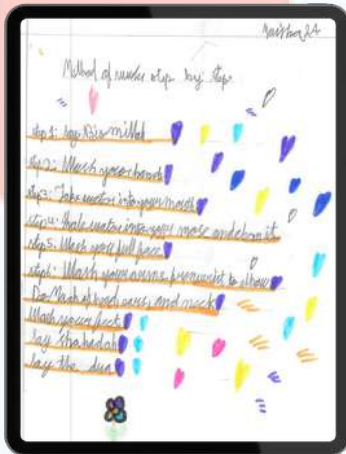 Method of wudu step by step
step 1: Say Bismillah
step 2: Wash your hands
step 3: Take water into your mouth
step 4: Inhale water into your nose and clean it
step 5: Wash your full face
step 6: Wash your arms from wrist to elbow
Do Mash of head, ears, and neck
Wash your feet
Say Shahadah
Say the dua